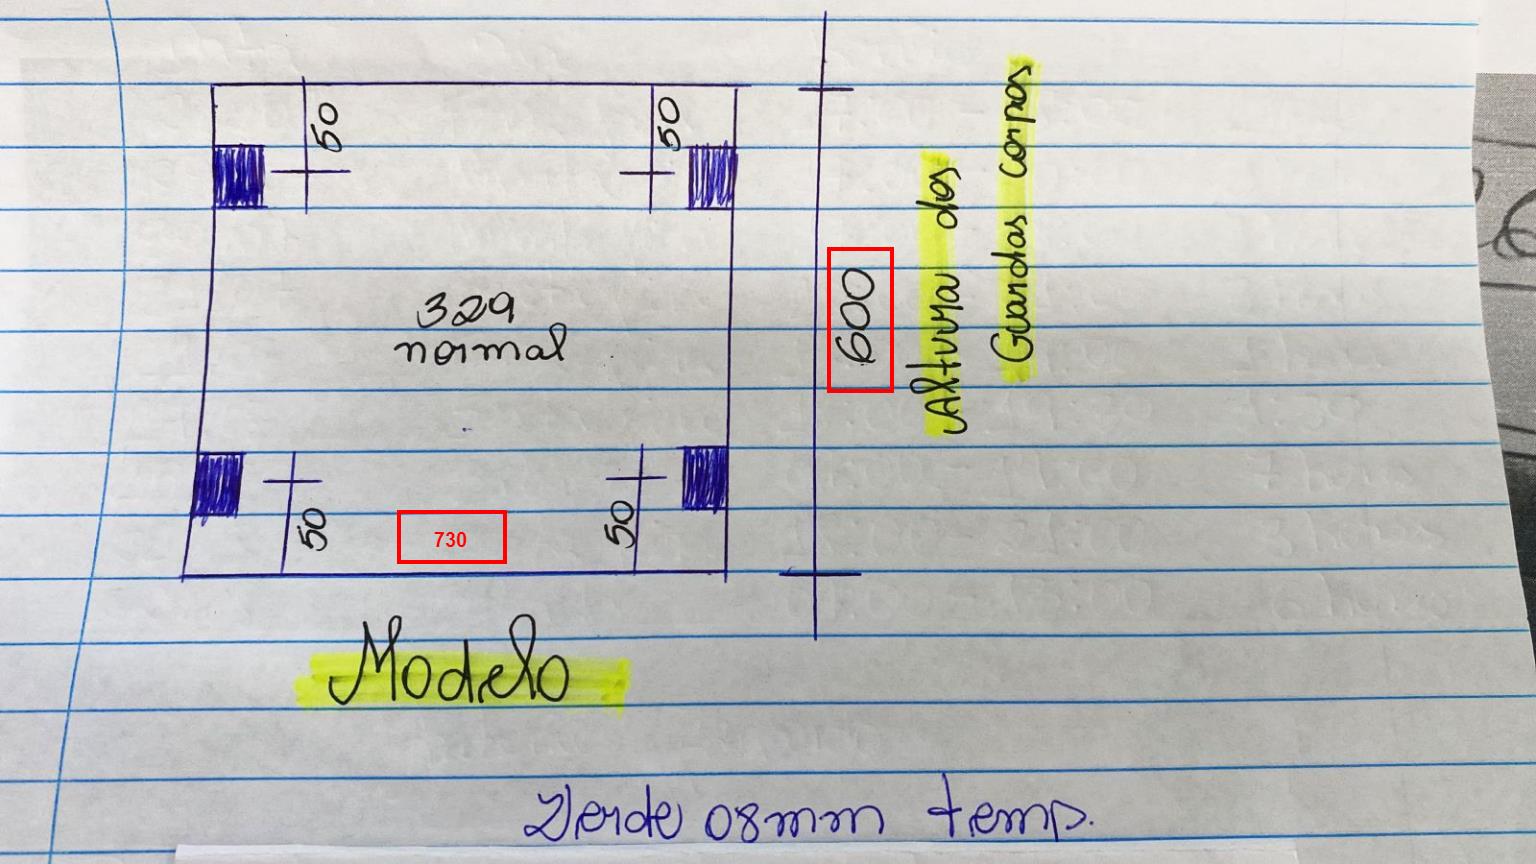 50
50
329
normal
600
Altura dos
Guardas corpos
50
730
50
Modelo
Verde 08mm temp.